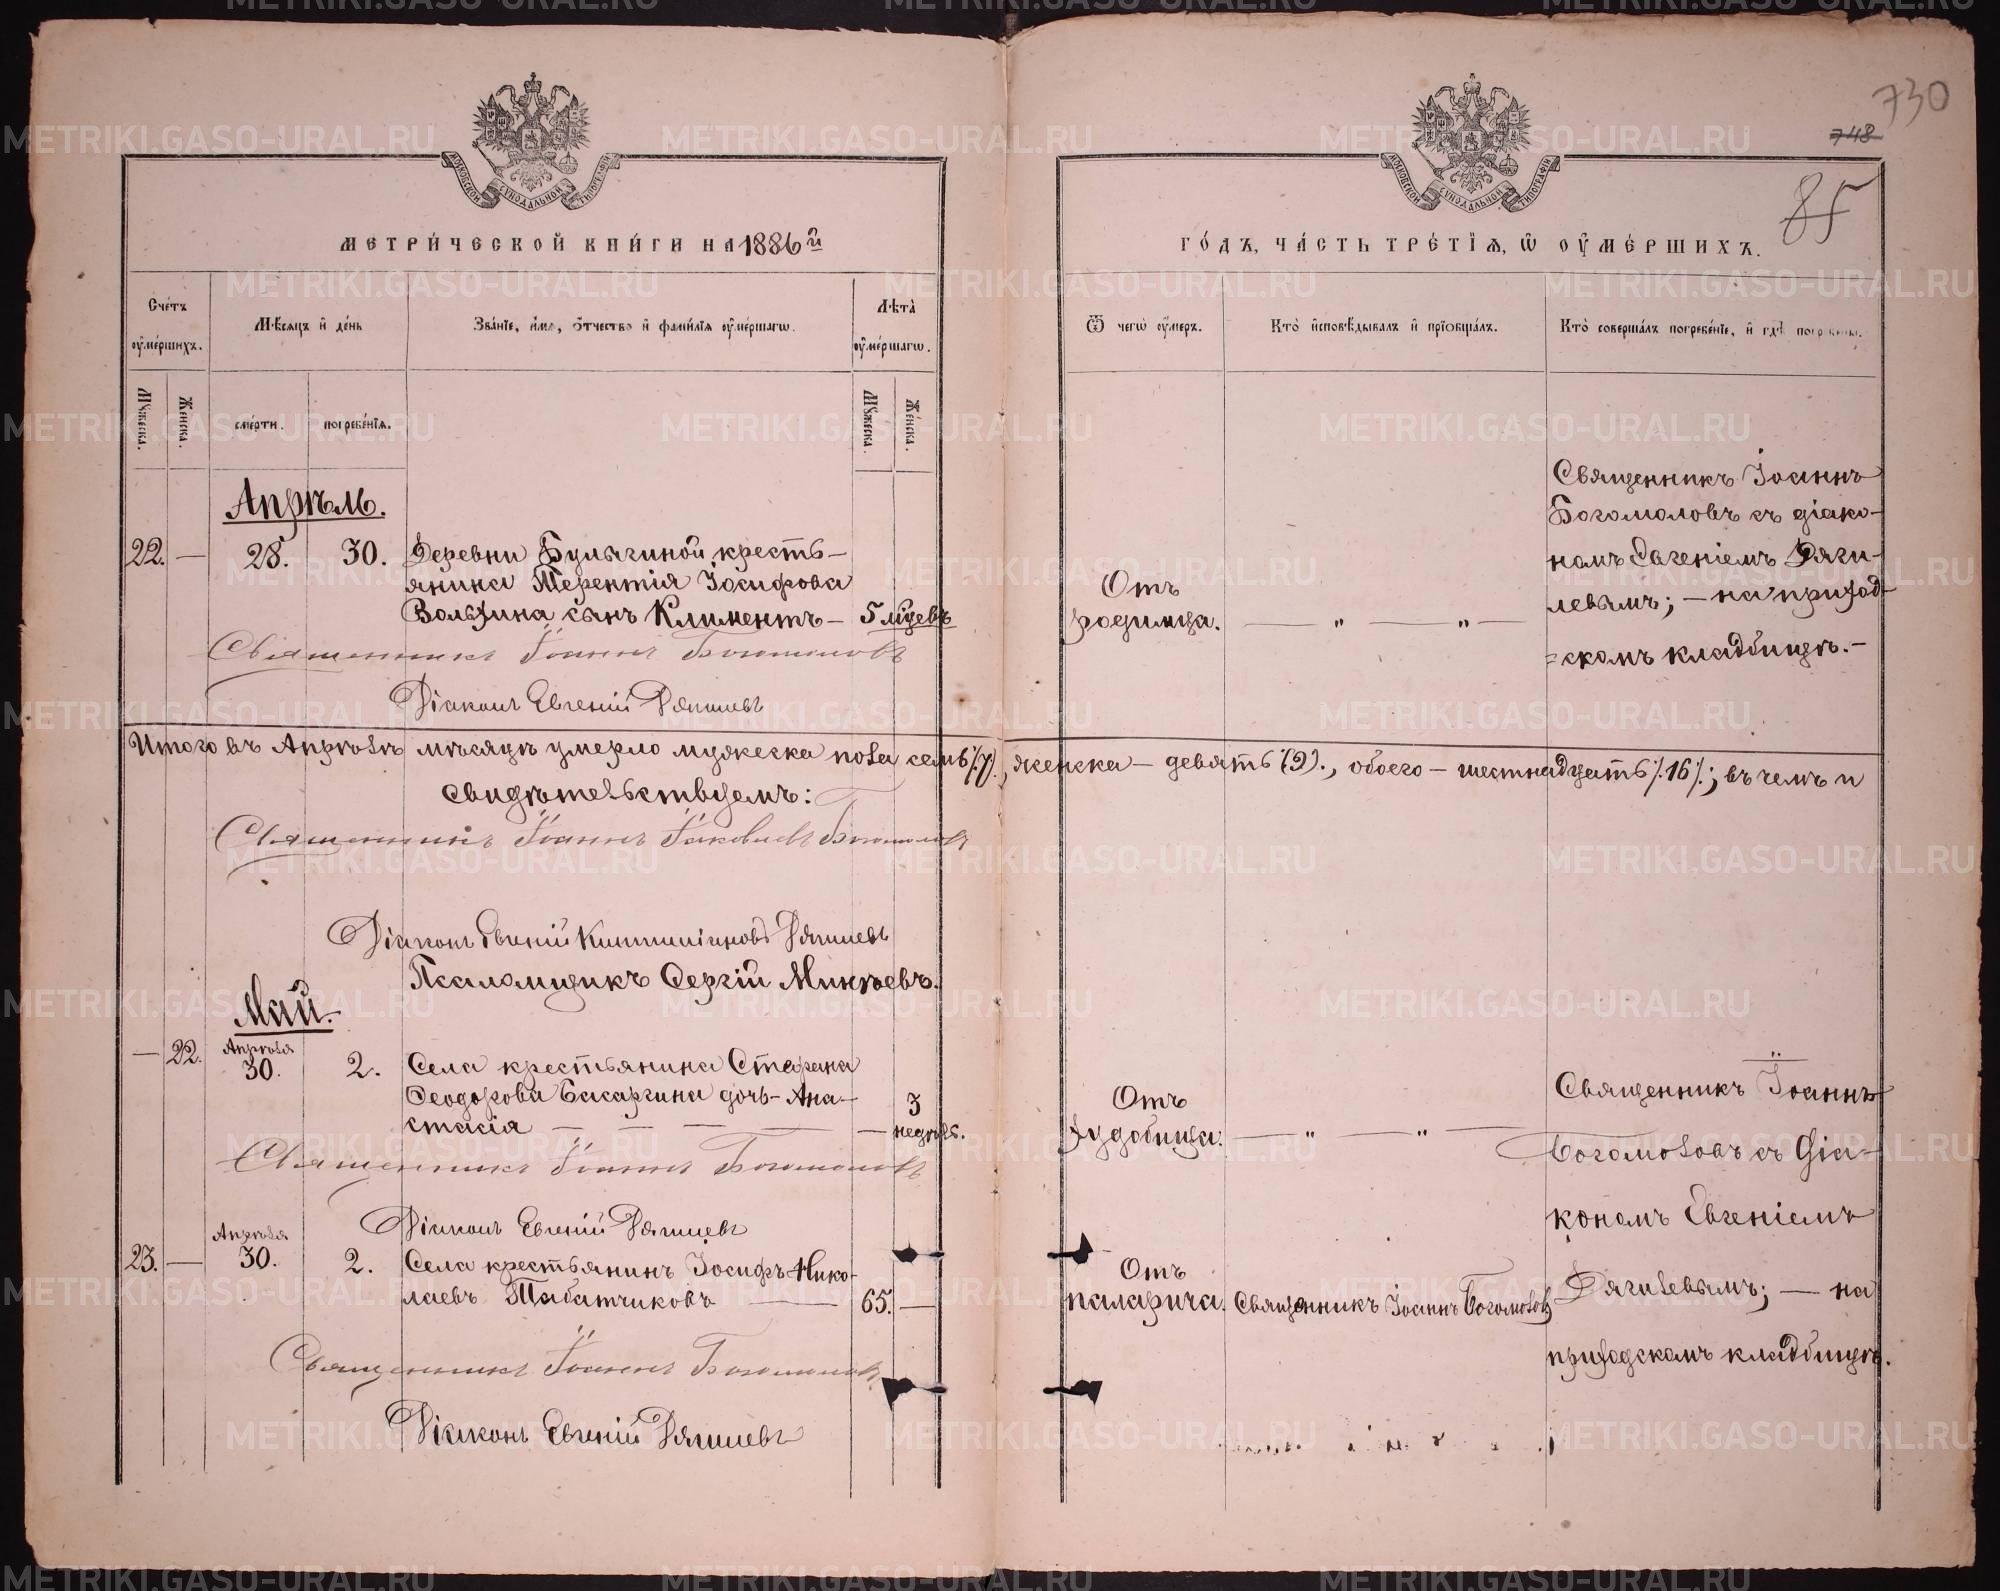 730
748
85
МОСКОВСКОЙ СѴНОДАЛЬНОЙ ТИПОГРАФІИ
МОСКОВСКОЙ СѴНОДАЛЬНОЙ ТИПОГРАФІИ
МЕТРИ́ЧЕСКОЙ КНИ́ГИ НА 1886й
ГО́ДЪ, ЧА́СТЬ ТРЕ́ТІѦ, Ѡ ОУМЕ́РШИХЪ.
Сче́тъ оуме́ршихъ.
Мѣсяцъ и де́нь
Зва́ніе, имѧ, ѻтчество и фами́лїѧ оуме́ршагѡ.
Лѣта̀ оуме́ршагѡ.
Ѿ чегѡ̀ оу́меръ.
Кто̀ исповѣдывалъ и прїѡбща́лъ.
Кто̀ соверша́лъ погребе́нїе, и гдѣ̀
Мꙋжеска. Женска. сме́рти. погребе́нїѧ. Мꙋжеска. Же́нска.
Апрѣль.
22. — 28. 30. Деревни Булычиной кресть-
янина Терентія Іосифова
сынъ Климентъ — 5 мѣсцевъ
Отъ
родимца. — " — " —
Священникъ Іоаннъ
Богомоловъ съ діако-
номъ Евгеніемъ Дяги-
левымъ; — на приход-
=скомъ кладбищѣ. —
Священникъ Іоаннъ Богомоловъ
Діаконъ Евгеній Дягилевъ
Итого въ Апрѣлѣ мѣсяцѣ умерло мужеска пола семь /.7/., женска — девять (9)., обоего — шестнадцать /.16/.; въ чемъ и
свидѣтельствуемъ:
Священникъ Іоаннъ Іаковлевъ Богомоловъ
Діаконъ Евгеній Дягилевъ
Псаломщикъ Сергій Микѣевъ.
Май.
— 22. Апрѣля 30. 2. Села крестьянина Стефана
Ѳеодорова Басаргина дочь — Ана-
стасія — — — — 3 недѣль.
Отъ
худобища. — " — " —
Священникъ Іоаннъ
Богомоловъ съ Діа-
кономъ Евгеніемъ
Дягилевымъ; — на
приходскомъ кладбищѣ.
Священникъ Іоаннъ Богомоловъ
Діаконъ Евгеній Дягилевъ
23. — Апрѣля 30. 2. Села крестьянинъ Іосифъ Нико-
лаевъ Табатчиковъ — 65. —
Отъ
паларича. Священникъ Іоаннъ Богомоловъ
Священникъ Іоаннъ Богомоловъ
Діаконъ Евгеній Дягилевъ
METRIKI.GASO-URAL.RU